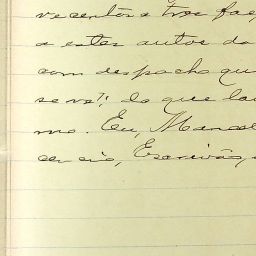 vecentos e tres faç
a estes autos do
com despacho qu
se vê; do que la
mo. Eu, Manoel
cencio, Escrivão,